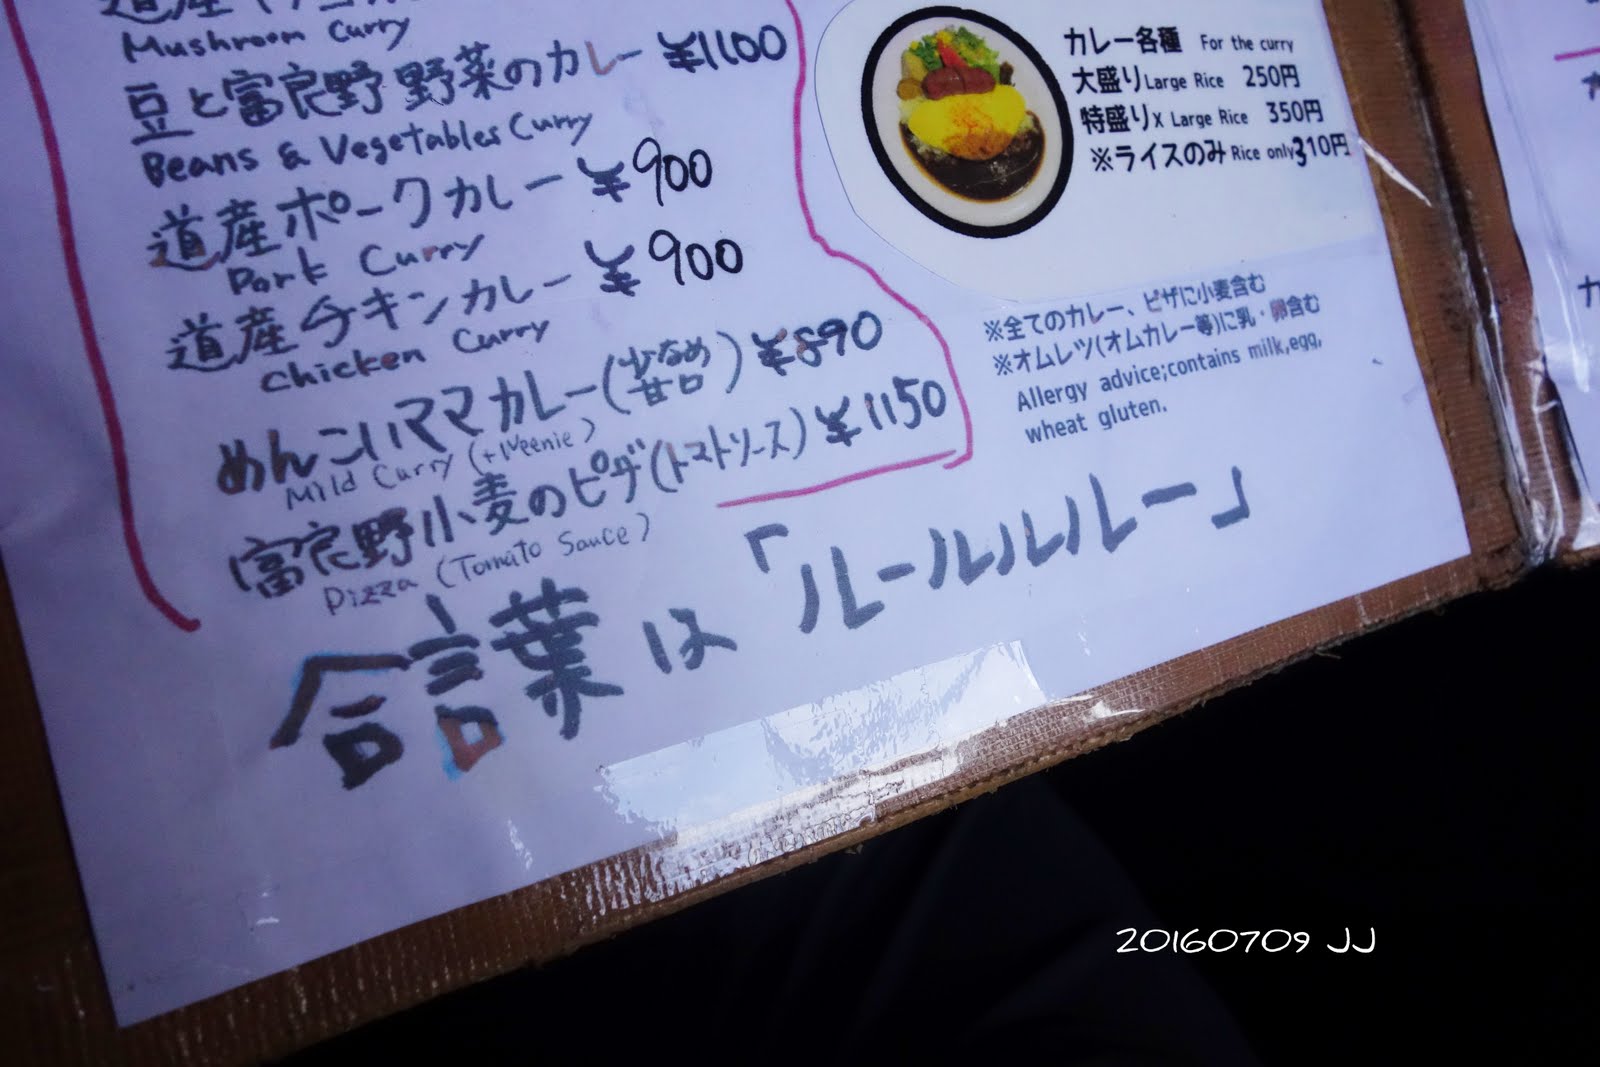 Mushroom Curry
豆と富良野野菜のカレー ¥1100
Beans & Vegetables Curry
道産ポークカレー ¥900
Pork Curry
道産チキンカレー ¥900
Chicken Curry
めんこいママカレー(少なめ甘口) ¥890
Mild Curry (+Weenie)
富良野小麦のピザ(トマトソース) ¥1150
Pizza (Tomato Sauce)
合言葉は「ルールルルルー」
カレー各種 For the curry
大盛り Large Rice 250円
特盛り X Large Rice 350円
※ライスのみ Rice only 310円
※全てのカレー、ピザに小麦含む
※オムレツ(オムカレー等)に乳・卵含む
Allergy advice;contains milk,egg,
wheat gluten.
20160709 JJ